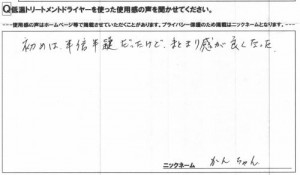 Q低温トリートメントドライヤーを使った使用感の声を聞かせてください。
---使用感の声はホームページ等で掲載させていただくことがあります。プライバシー保護のため掲載はニックネームとなります。---
初めは、半信半疑だったけど、まとまり感が良くなった
ニックネーム かんちゃん